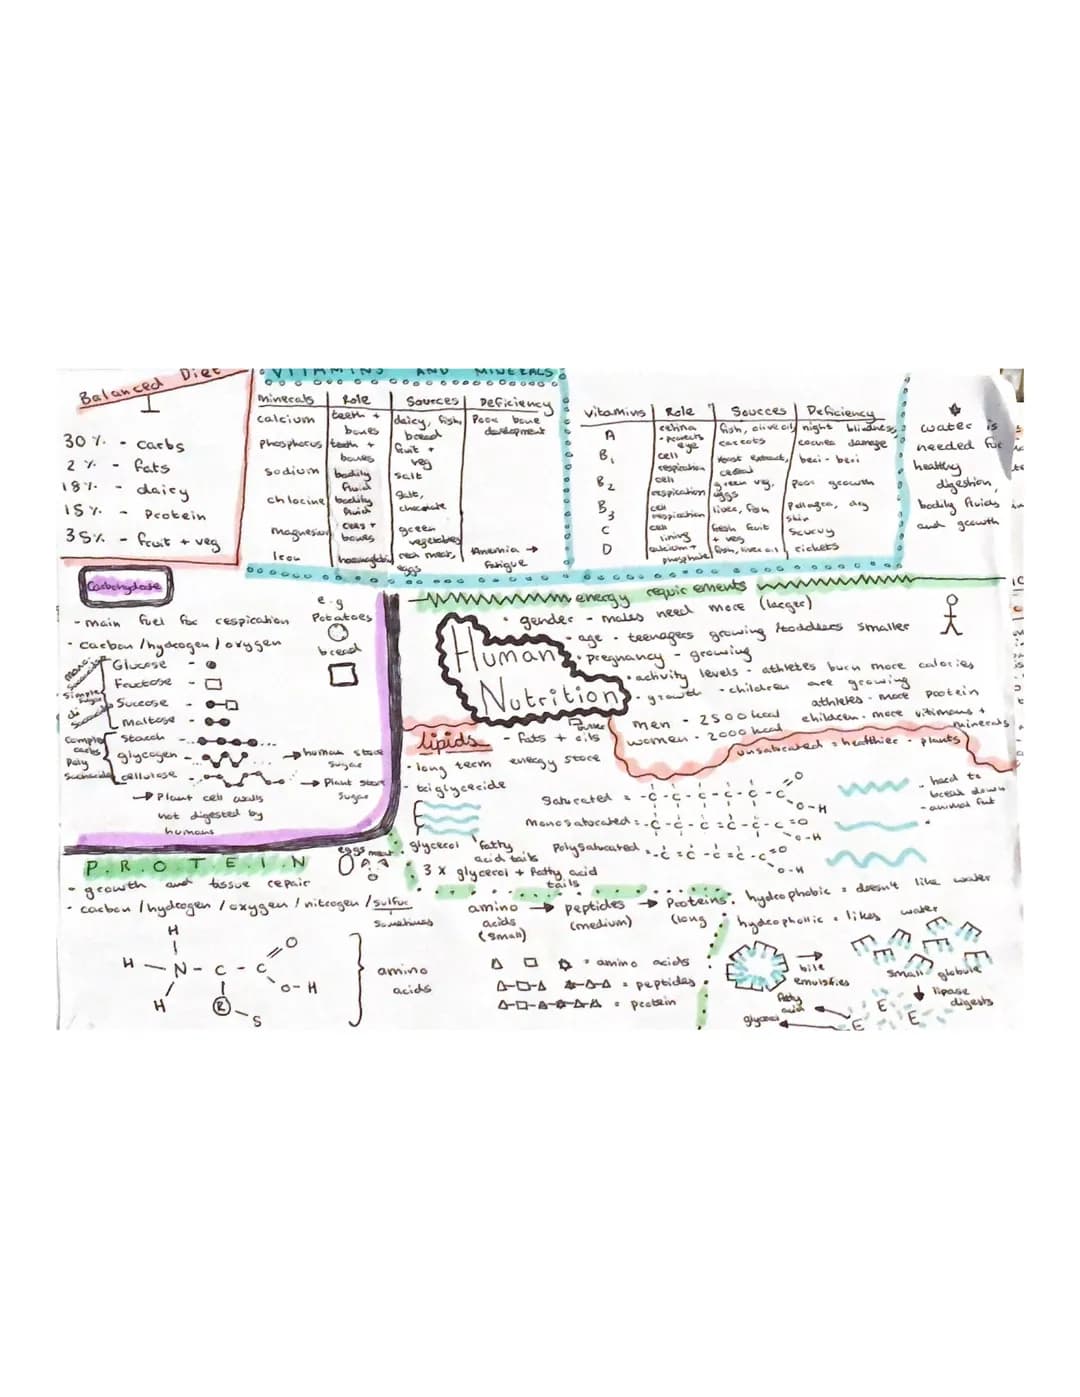 Balanced Diet
30% - carbs
2% - fats
18% - dairy
15% - Protein
35% - fruit + veg
VITAMINS AND MINERALS
minerals Role Sources Deficiency
calcium teeth + bones dairy, fish, bread Poor bone development
phosphorus teeth + bones fruit + veg
sodium bodily fluid salt
chlorine bodily fluid salt, chocolate
magnesium bones green vegetables
Iron haemoglobin red meat, eggs Anemia → Fatigue
vitamins Role Sources Deficiency
A retina • protects eye fish, olive oil, carrots night blindness, cornea damage
B1 cell respiration yeast extract, cereal beri - beri
B2 cell respiration green veg, eggs Poor growth
B3 cell respiration liver, fish Pellagra, dry skin
C cell lining fresh fruit + veg Scurvy
D calcium + phosphate fish, liver oil rickets
water is
needed for
healthy
digestion,
bodily fluids
and growth
Carbohydrate
- main fuel for respiration
• carbon/hydrogen/oxygen
e.g
Potatoes
bread
mono
simple
Glucose -
Fructose -
di
Sucrose -
Maltose -
complex carbs
Poly
Starch -
glycogen - → human store sugar
cellulose - → Plant store sugar
→ Plant cell walls
not digested by
humans
energy requirements
• gender - males need more (larger)
• age - teenagers growing / toddlers smaller
• pregnancy - growing
• activity levels - athletes burn more calories
• growth - children are growing
athletes - more protein
children - more vitimans + minerals
men - 2500 kcal
women - 2000 kcal
Human
Nutrition
lipids - fats + oils
• long term energy store
- triglyceride
glycerol fatty acid tails
• 3 x glycerol + fatty acid tails
unsaturated = healthier - plants
Saturated = -C-C-C-C-C-C O O-H
Monosaturated = -C-C-C=C-C-C=O O-H
Polysaturated = -C=C-C=C-C=O O-H
- hard to
break down
- animal fat
P.R.O.T.E.I.N
eggs meat
• growth and tissue repair
• carbon/hydrogen/oxygen/nitrogen/sulfur
Sometimes
H
H - N - C - C O
H R O-H
S
amino
acids
amino acids (small) → peptides (medium) → Proteins (long
= amino acids
= peptides
= protein
hydrophobic = doesn't like water
hydrophollic = likes water
→ bile emulsifies
small globule
↓ lipase digests
fatty acid
glycerol
E E E